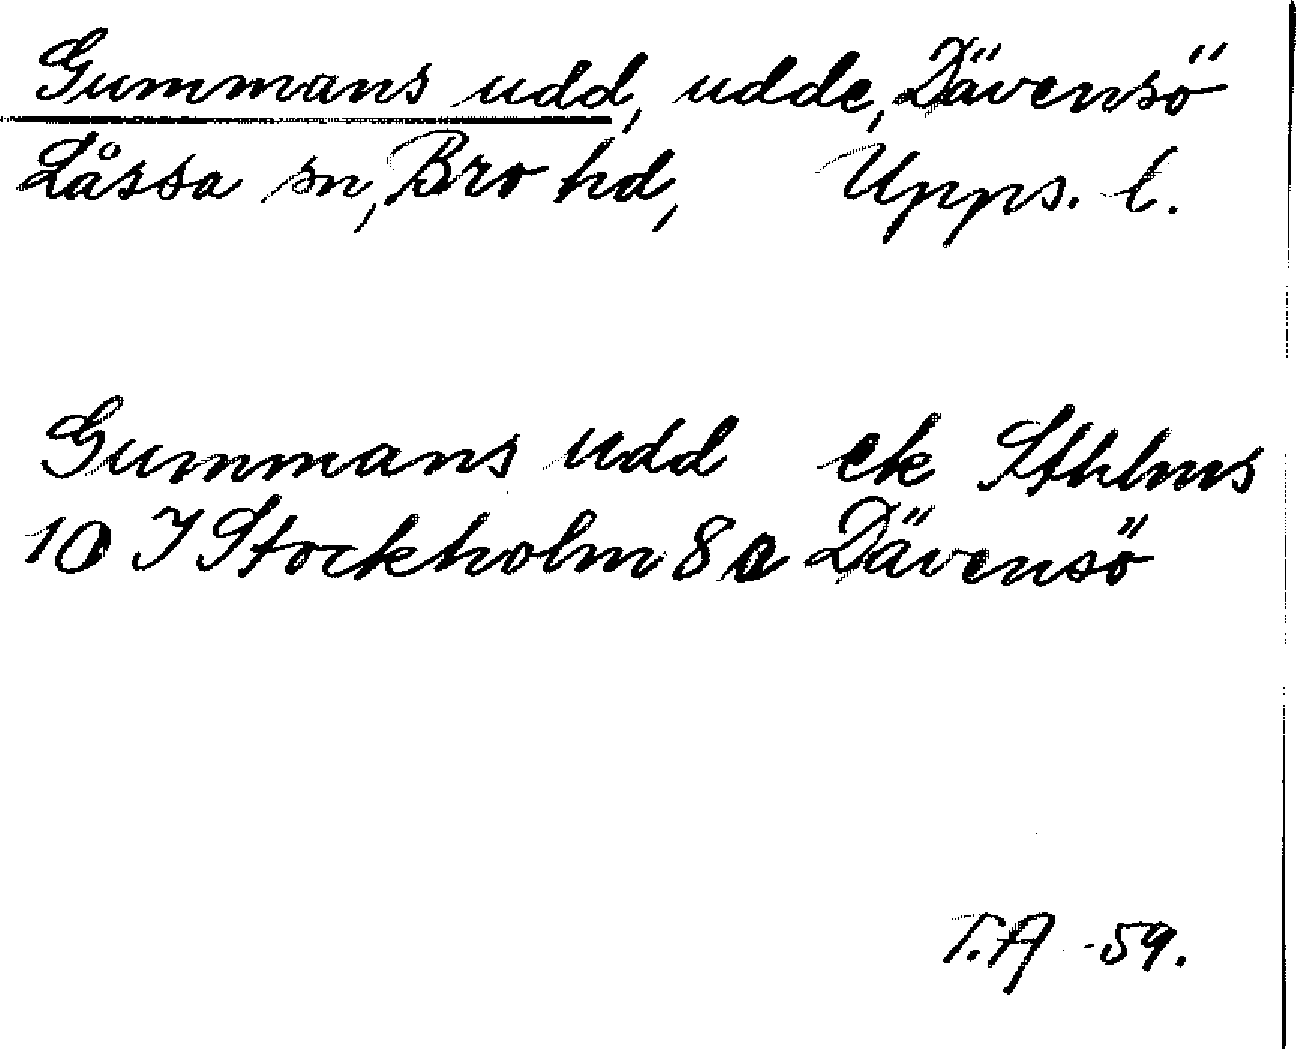 Gummans udd, udde, Dävensö
Låssa sn, Bro hd, Upps. l.
Gummans udd ek Sthlms
10 I Stockholm 8 a Dävensö
T.A -59.